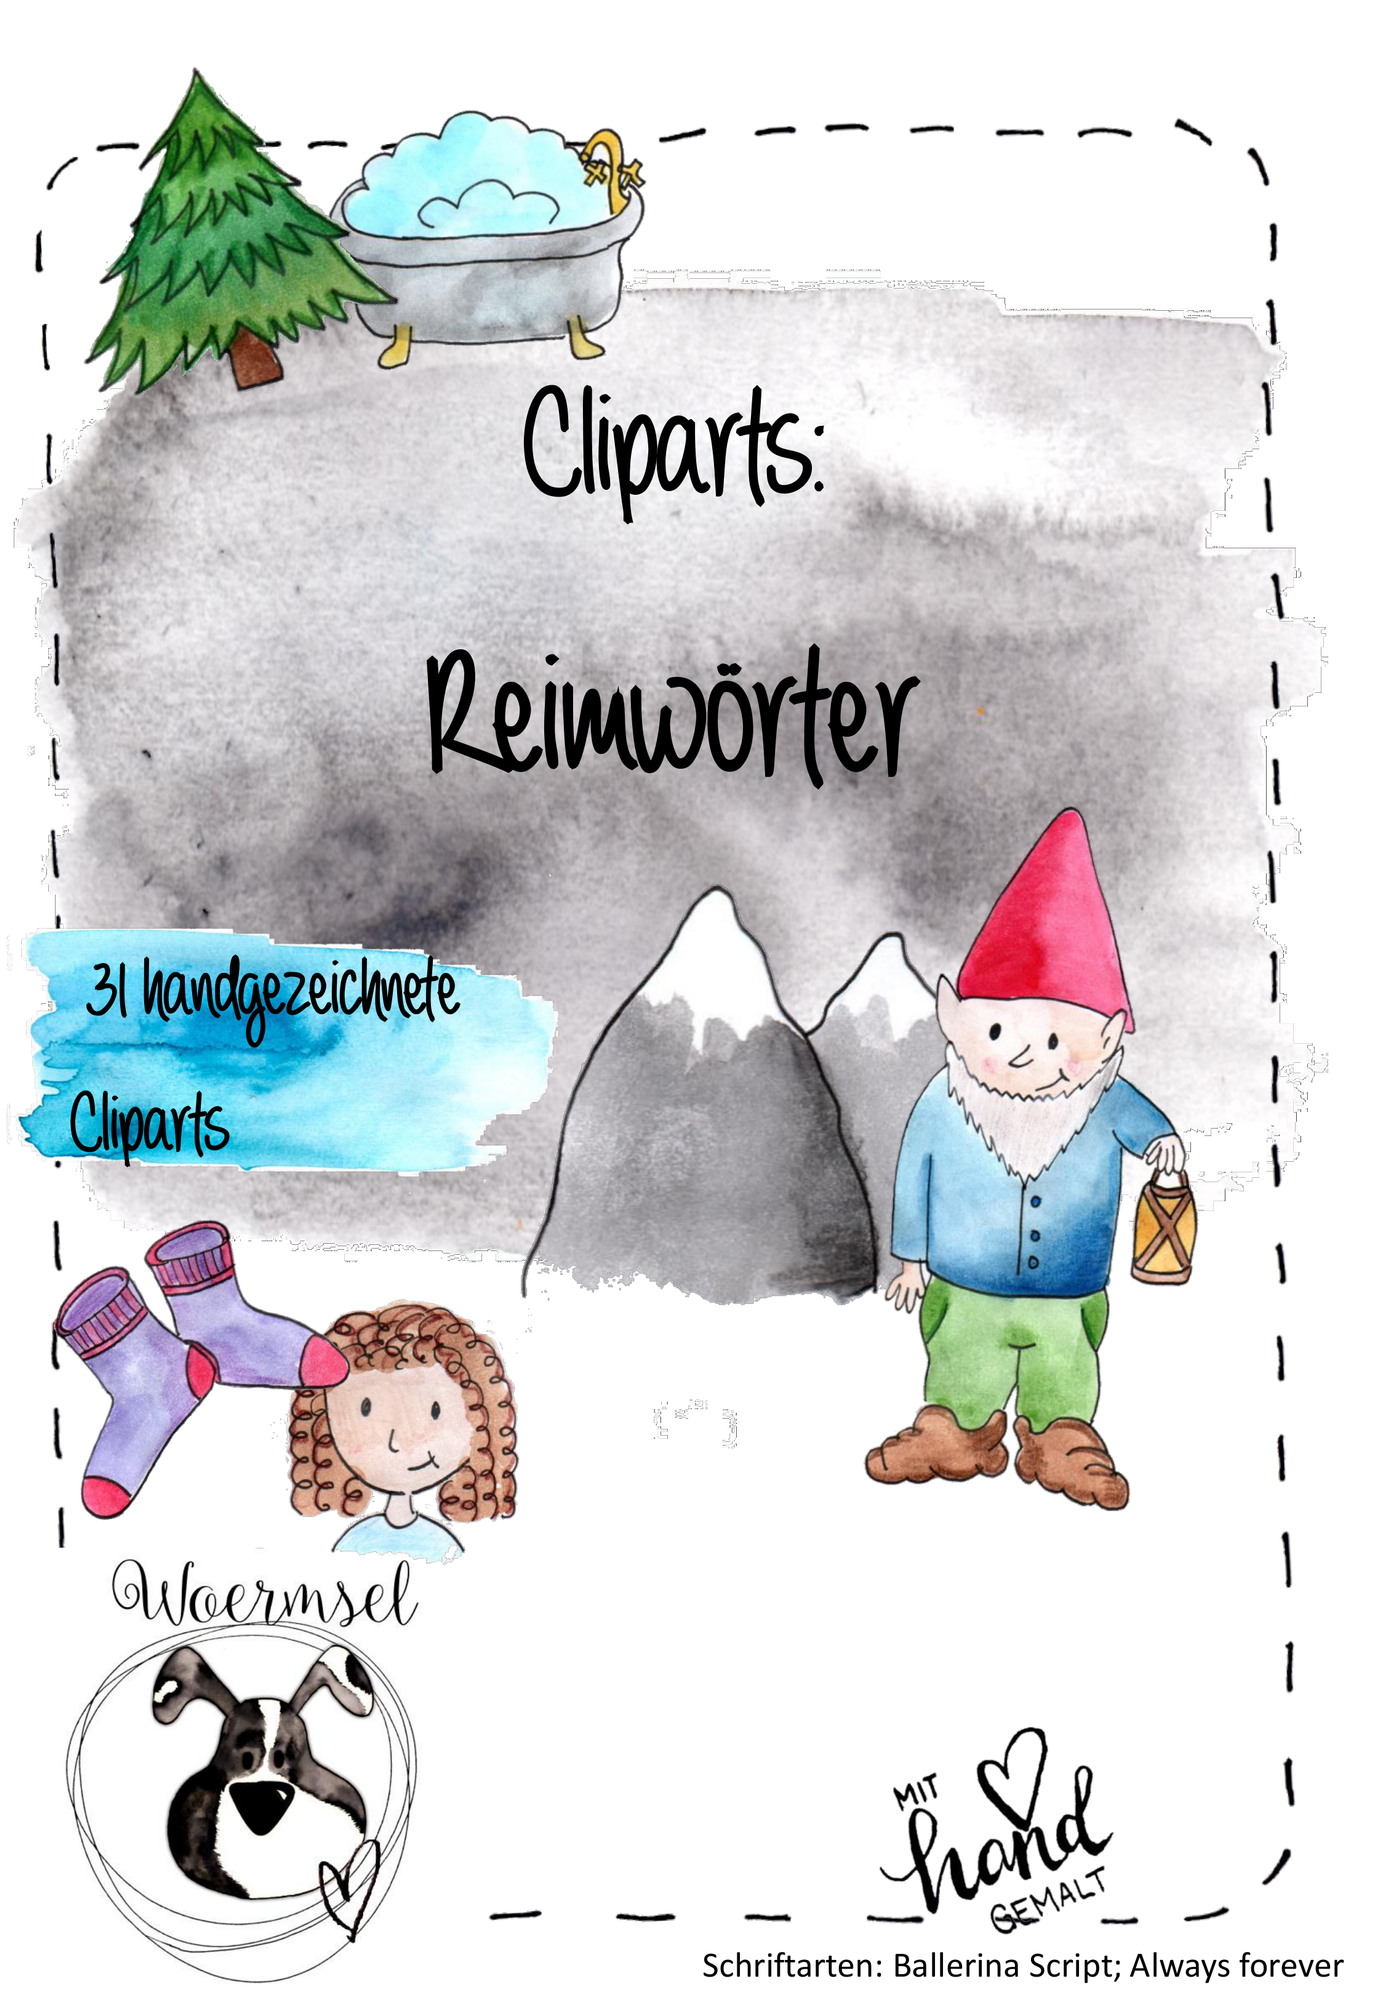 Cliparts:
Reimwörter
31 handgezeichnete
Cliparts
Woermsel
MIT
hand
GEMALT
Schriftarten: Ballerina Script; Always forever